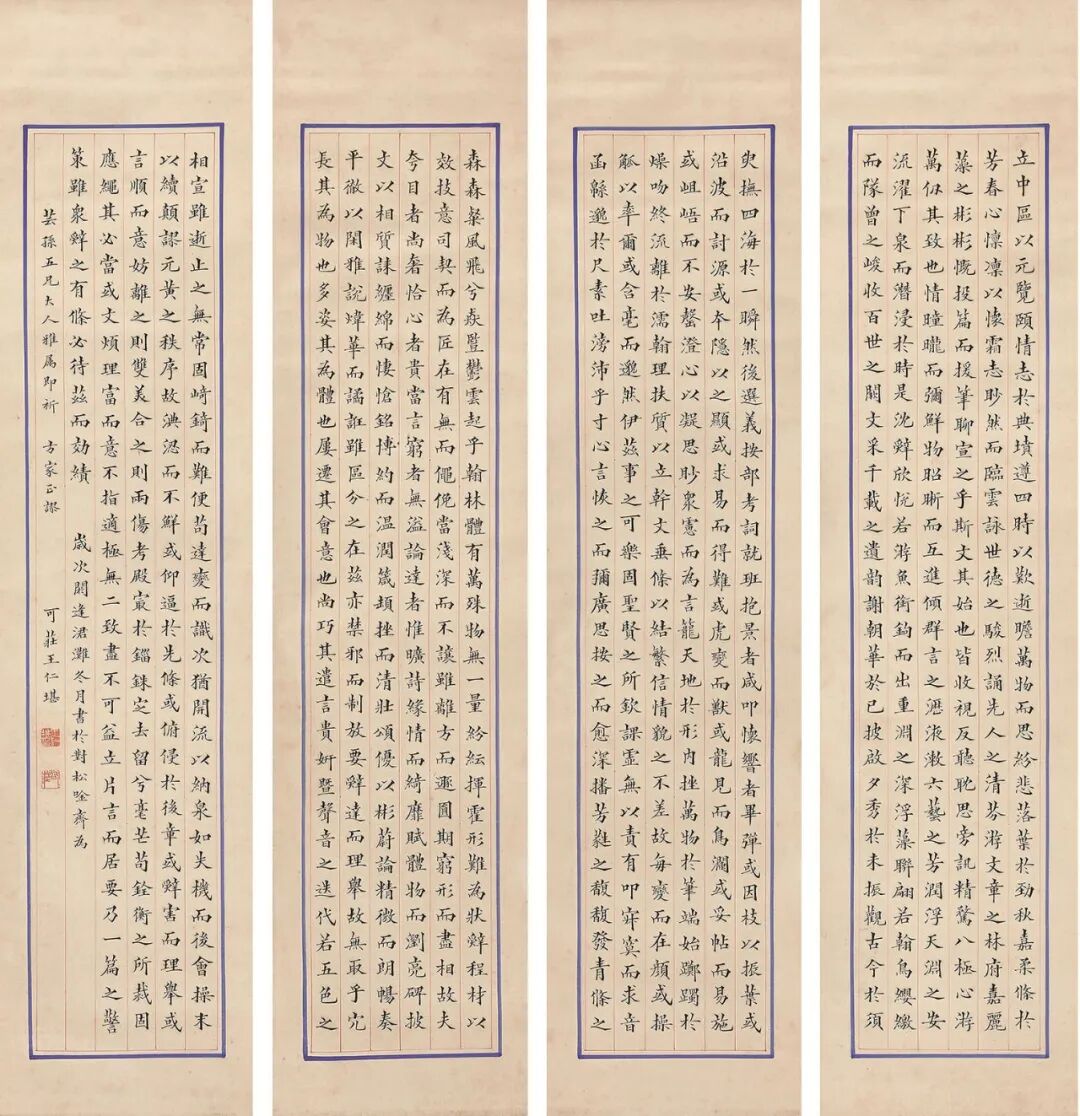 立中區以元覽頤情志於典墳遵四時以歎逝瞻萬物而思紛悲落葉於勁秋嘉柔條於
芳春心懍凜以懷霜志眇然而臨雲詠世德之駿烈誦先人之清芬游文章之林府嘉麗
藻之彬彬慨投篇而援筆聊宣之乎斯文其始也皆收視反聽耽思旁訊精騖八極心游
萬仞其致也情曈曨而彌鮮物昭晰而互進傾群言之瀝液漱六藝之芳潤浮天淵之安
流濯下泉而潛浸於時是沈辭欣悅若游魚銜鉤而出重淵之深浮藻聯翩若翰鳥纓繳
而隊曾之峻收百世之闕文采千載之遺韵謝朝華於已披啟夕秀於未振觀古今於須
臾撫四海於一瞬然後選義按部考詞就班抱景者咸叩懷響者畢彈或因枝以振葉或
沿波而討源或夲隱以之顯或求易而得難或虎變而獸或龍見而鳥瀾或妥帖而易施
或岨峿而不安罄澄心以凝思眇衆慮而為言籠天地於形內挫萬物於筆端始躑躅於
燥吻終流離於濡翰理扶質以立幹文垂條以結繁信情貌之不差故每變而在顏或操
觚以率爾或含毫而邈然伊茲事之可樂固聖賢之所欽課虛無以責有叩寂寞而求音
函緜邈於尺素吐滂沛乎寸心言恢之而彌廣思按之而愈深播芳蕤之馥馥發青條之
森森粲風飛兮猋豎鬱雲起乎翰林體有萬殊物無一量紛紜揮霍形難為狀辭程材以
效技意司契而為匠在有無而僶俛當淺深而不讓雖離方而遯圓期窮形而盡相故夫
夸目者尚奢愜心者貴當言窮者無溢論達者惟曠詩緣情而綺靡賦體物而瀏亮碑披
文以相質誄纏綿而悽愴銘博約而温潤箴頓挫而清壯頌優以彬蔚論精微而朗暢奏
平徹以閑雅說煒華而譎誑雖區分之在茲亦禁邪而制放要辭達而理舉故無取乎宂
長其為物也多姿其為體也屢遷其會意也尚巧其遣言貴妍暨聲音之迭代若五色之
相宣雖逝止之無常固崎錡而難便苟達變而識次猶開流以納泉如失機而後會操末
以續顛謬元黃之秩序故淟涊而不鮮或仰逼於先條或俯侵於後章或辭害而理舉或
言順而意妨離之則雙美合之則兩傷考殿最於錙銖定去留兮毫芒苟銓衡之所裁固
應繩其必當或文煩理富而意不指適極無二致盡不可益立片言而居要乃一篇之警
策雖衆辭之有條必待茲而効績 歲次閼逢涒灘冬月書於對松唫齋為
芸孫五兄大人雅屬即祈 方家正謬 可莊王仁堪